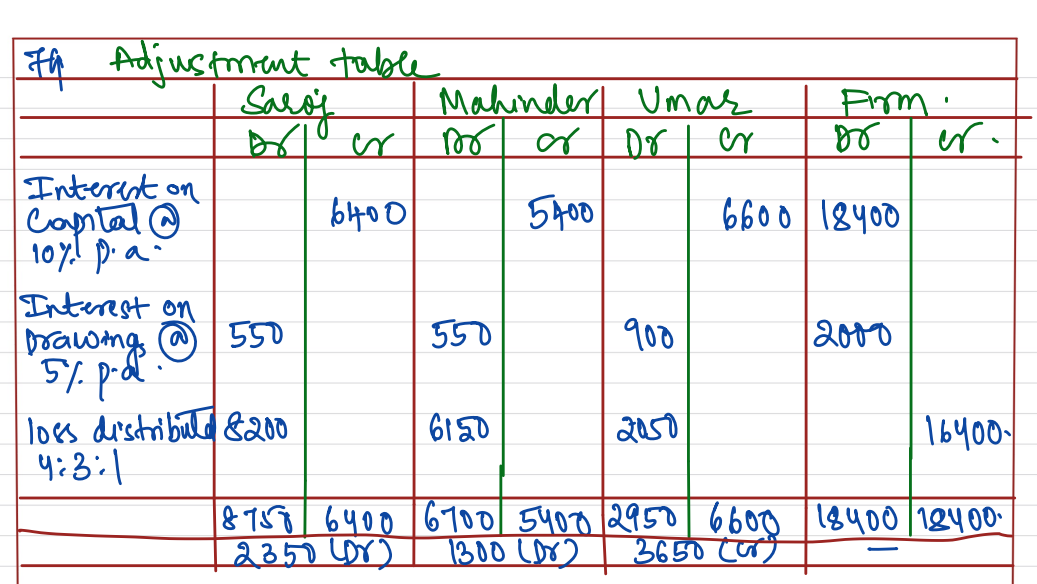 79 Adjustment table
Saroj Mahinder Umar Firm.
Dr Cr Dr Cr Dr Cr Dr Cr.
Interest on
Capital @ 6400 5400 6600 18400
10% p.a.
Interest on
Drawings @ 550 550 900 2000
5% p.a.
loss distributed 8200 6150 2050 16400.
4:3:1
8750 6400 6700 5400 2950 6600 18400 18400.
2350 (Dr) 1300 (Dr) 3650 (Cr) —